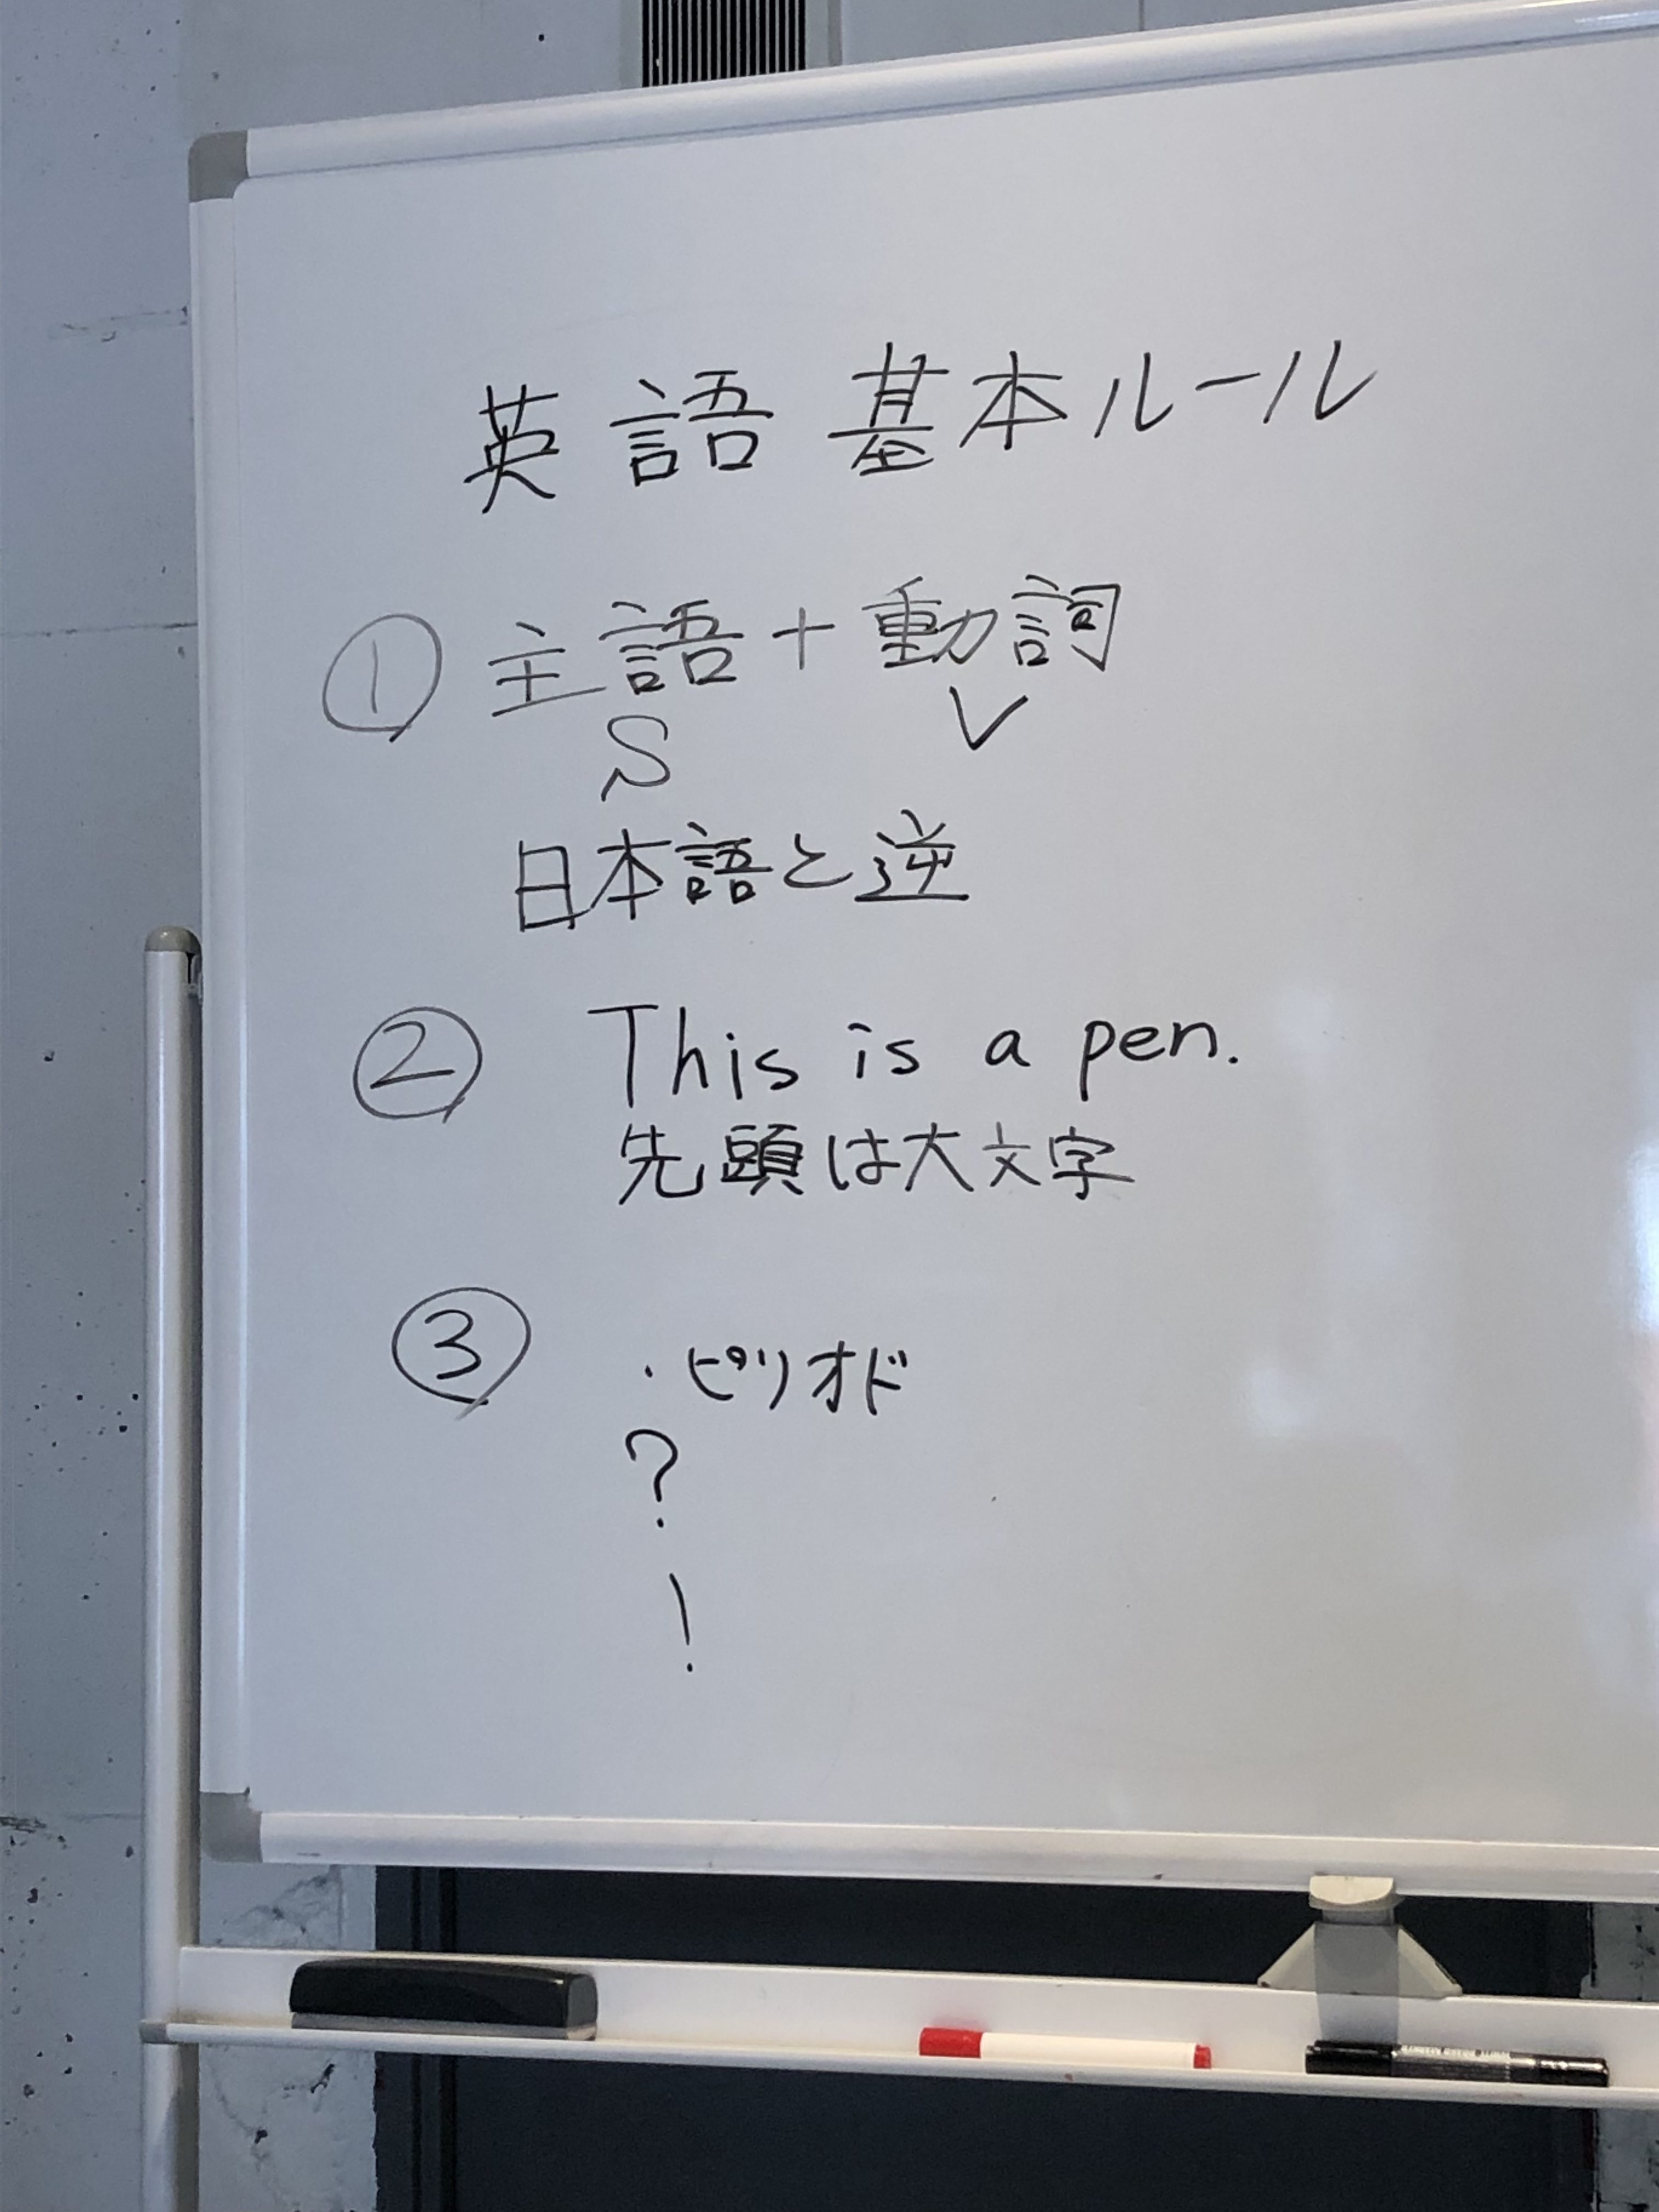 英語 基本ルール
① 主語+動詞
S V
日本語と逆
② This is a pen.
先頭は大文字
③ . ピリオド
?
!